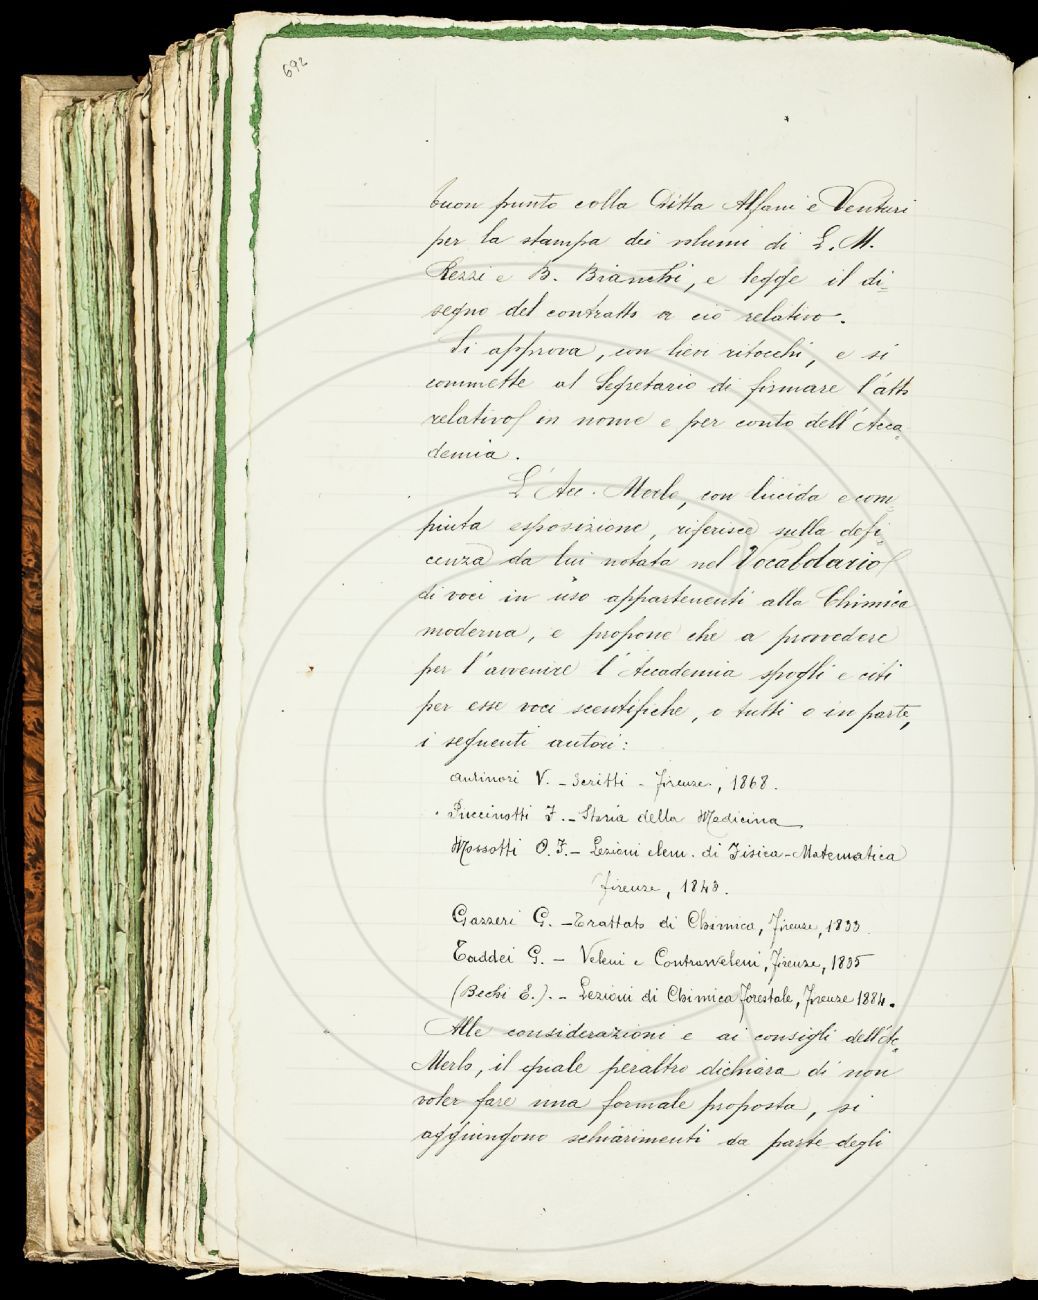 692
buon punto colla Ditta Alfani e Venturi
per la stampa dei volumi di L. M.
Rezzi e B. Bianchi, e legge il di=
segno del contratto a ciò relativo.
Si approva, con lievi ritocchi, e si
commette al Segretario di firmare l'atto
relativo in nome e per conto dell'Acca=
demia.
L'Acc. Merlo, con lucida e com=
piuta esposizione, riferisce sulla defi=
cenza da lui notata nel Vocabolario
di voci in uso appartenenti alla Chimica
moderna, e propone che a provvedere
per l'avvenire l'Accademia spogli e citi
per esse voci scentifiche, o tutti o in parte,
i seguenti autori:
Antinori V. - Scritti - Firenze, 1868.
Puccinotti F. - Storia della Medicina
Mossotti O. F. - Lezioni elem. di Fisica-Matematica
Firenze, 1843.
Gazzeri G. - Trattato di Chimica, Firenze, 1833.
Taddei G. - Veleni e Contravveleni, Firenze, 1835
(Bechi E.). - Lezioni di Chimica forestale, Firenze 1884.
Alle considerazioni e ai consigli dell'Ac=
Merlo, il quale peraltro dichiara di non
voler fare una formale proposta, si
aggiungono schiarimenti da parte degli